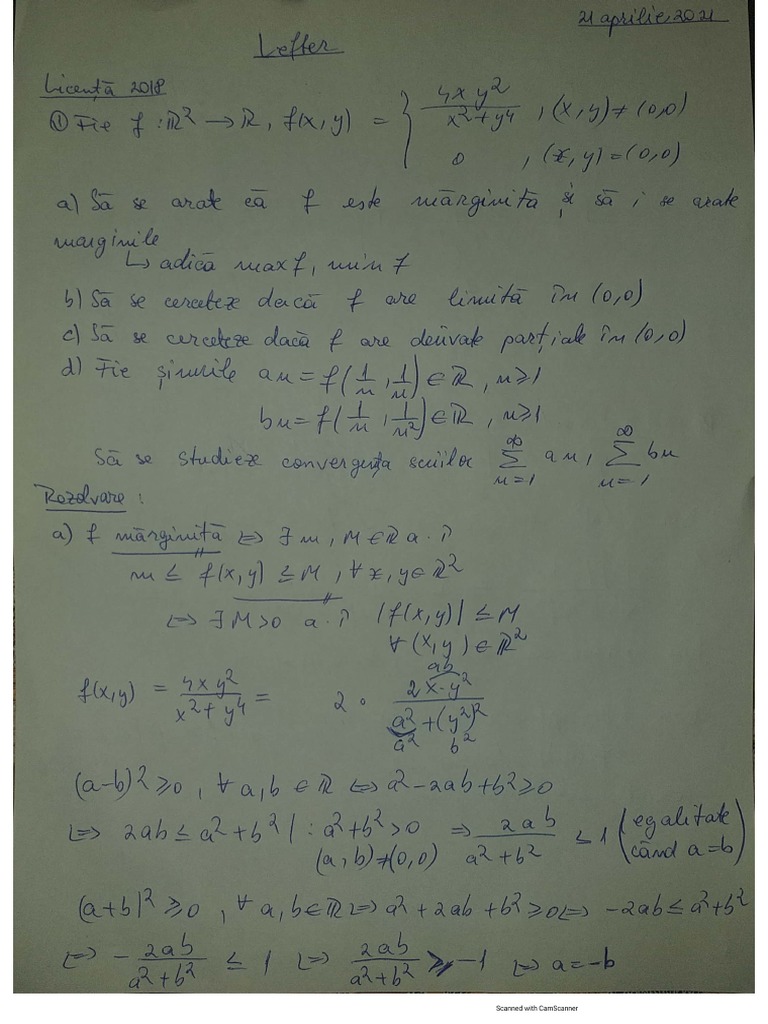 21 aprilie, 2021
Lefter
Licență 2018
① Fie f : ℝ² → ℝ, f(x,y) = { 4xy² / (x²+y⁴) , (x,y) ≠ (0,0)
0 , (x,y) = (0,0)
a) Să se arate că f este mărginită și să i se arate
marginile
↳ adică max f, min f
b) Să se cerceteze dacă f are limită în (0,0)
c) Să se cerceteze dacă f are derivate parțiale în (0,0)
d) Fie șirurile an = f(1/n, 1/n) ∈ ℝ, n ≥ 1
bn = f(1/n, 1/n²) ∈ ℝ, n ≥ 1
Să se studieze convergența seriilor ∞ Σ n=1 an, ∞ Σ n=1 bn
Rezolvare :
a) f mărginită ⇔ ∃ m, M ∈ ℝ a.î
m ≤ f(x,y) ≤ M, ∀ x,y ∈ ℝ²
⇔ ∃ M>0 a.î |f(x,y)| ≤ M
∀ (x,y) ∈ ℝ²
ab
f(x,y) = 4xy² / (x²+y⁴) = 2 · 2x·y² / (a²+(y²)²)
a² b²
(a-b)² ≥ 0, ∀ a,b ∈ ℝ ⇔ a²-2ab+b² ≥ 0
⇔ 2ab ≤ a²+b² | : a²+b² > 0 ⇒ 2ab / (a²+b²) ≤ 1 (egalitate
(a,b) ≠ (0,0) când a=b)
(a+b)² ≥ 0, ∀ a,b ∈ ℝ ⇔ a²+2ab+b² ≥ 0 ⇔ -2ab ≤ a²+b²
⇔ - 2ab / (a²+b²) ≤ 1 ⇔ 2ab / (a²+b²) ≥ -1 ⇔ a=-b
Scanned with CamScanner